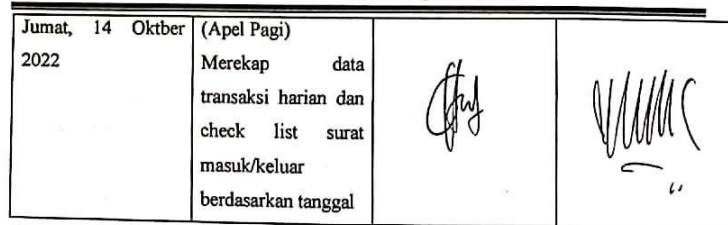 Jumat, 14 Oktber
2022
(Apel Pagi)
Merekap data
transaksi harian dan
check list surat
masuk/keluar
berdasarkan tanggal